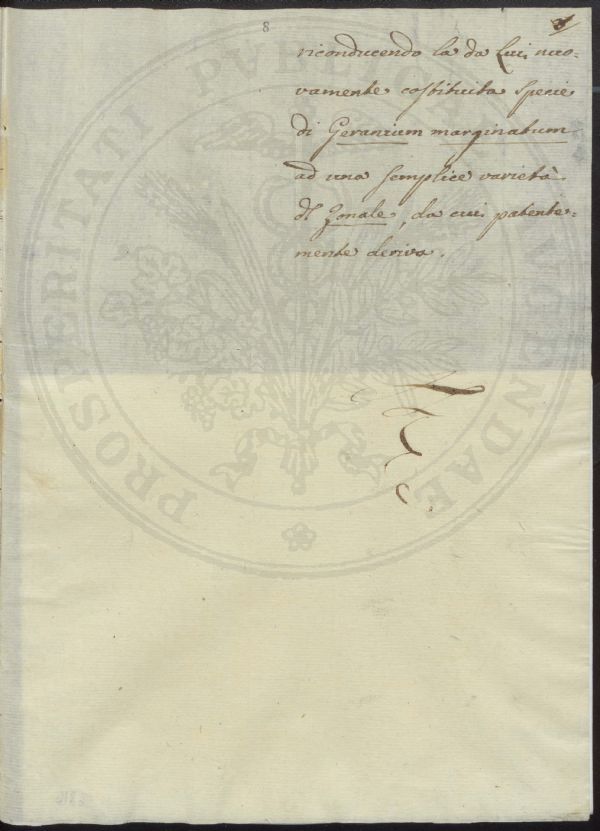 8
riconducendo la da Lui nuo-
vamente costituita specie
di Geranium marginatum
ad una semplice varietà
di Zonale, da cui patente-
mente deriva.
PROSPERITATI PVBLICAE AVGENDAE